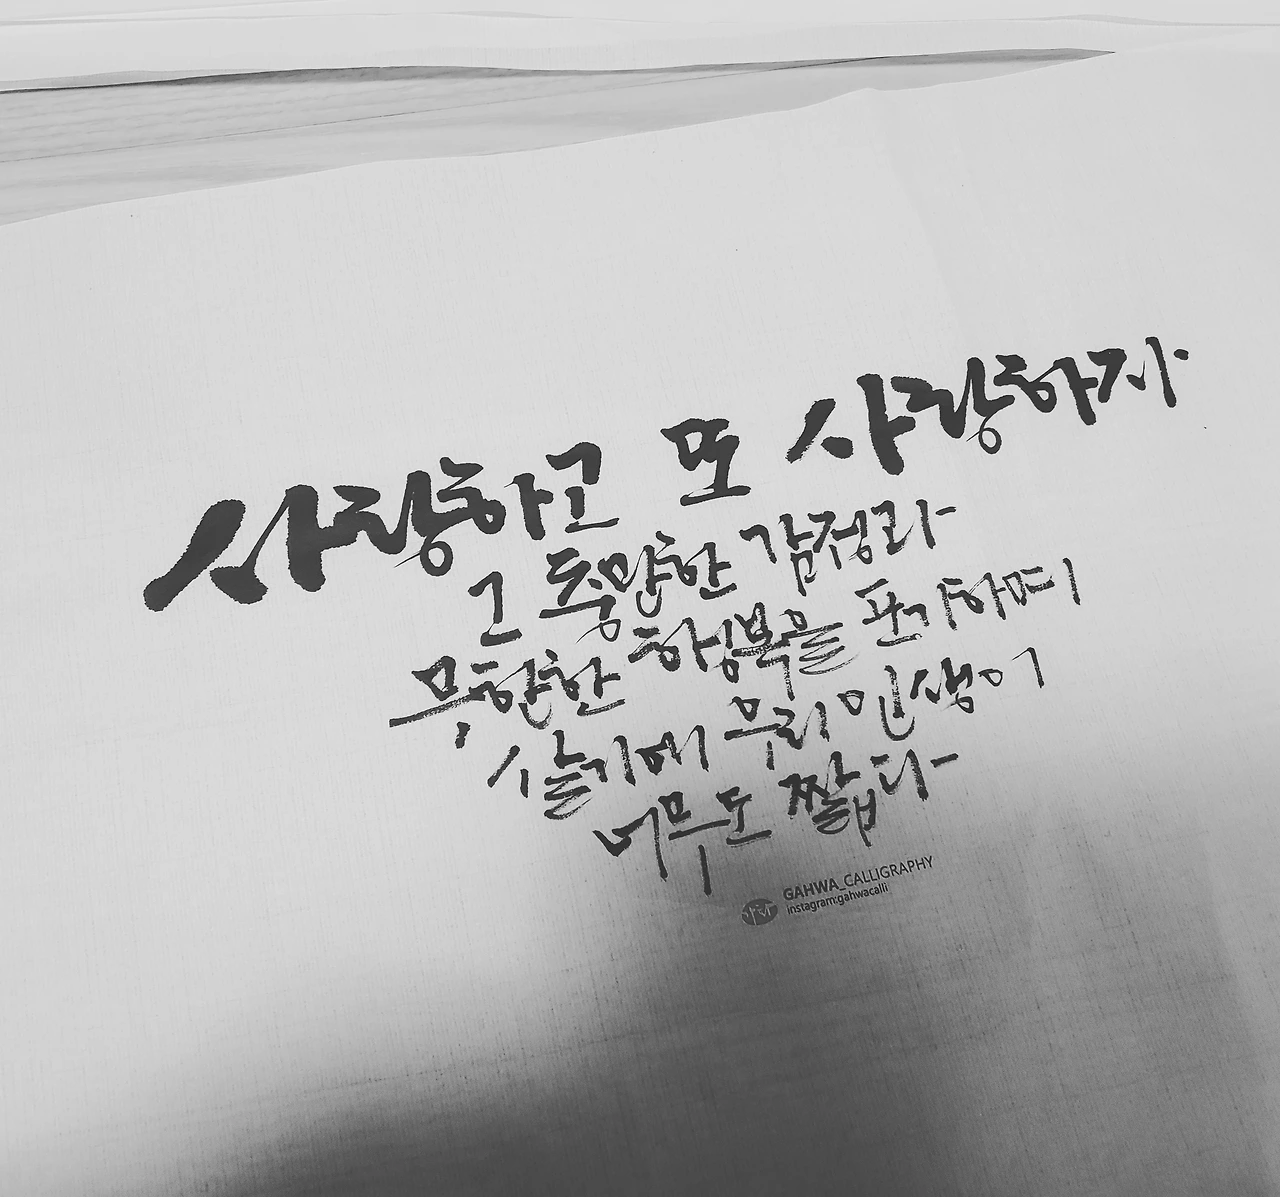 사랑하고 또 사랑하자
그 충만한 감정과
무한한 행복을 포기하며
살기에 우리 인생이
너무도 짧다
가화
GAHWA_CALLIGRAPHY
instagram:gahwacalli